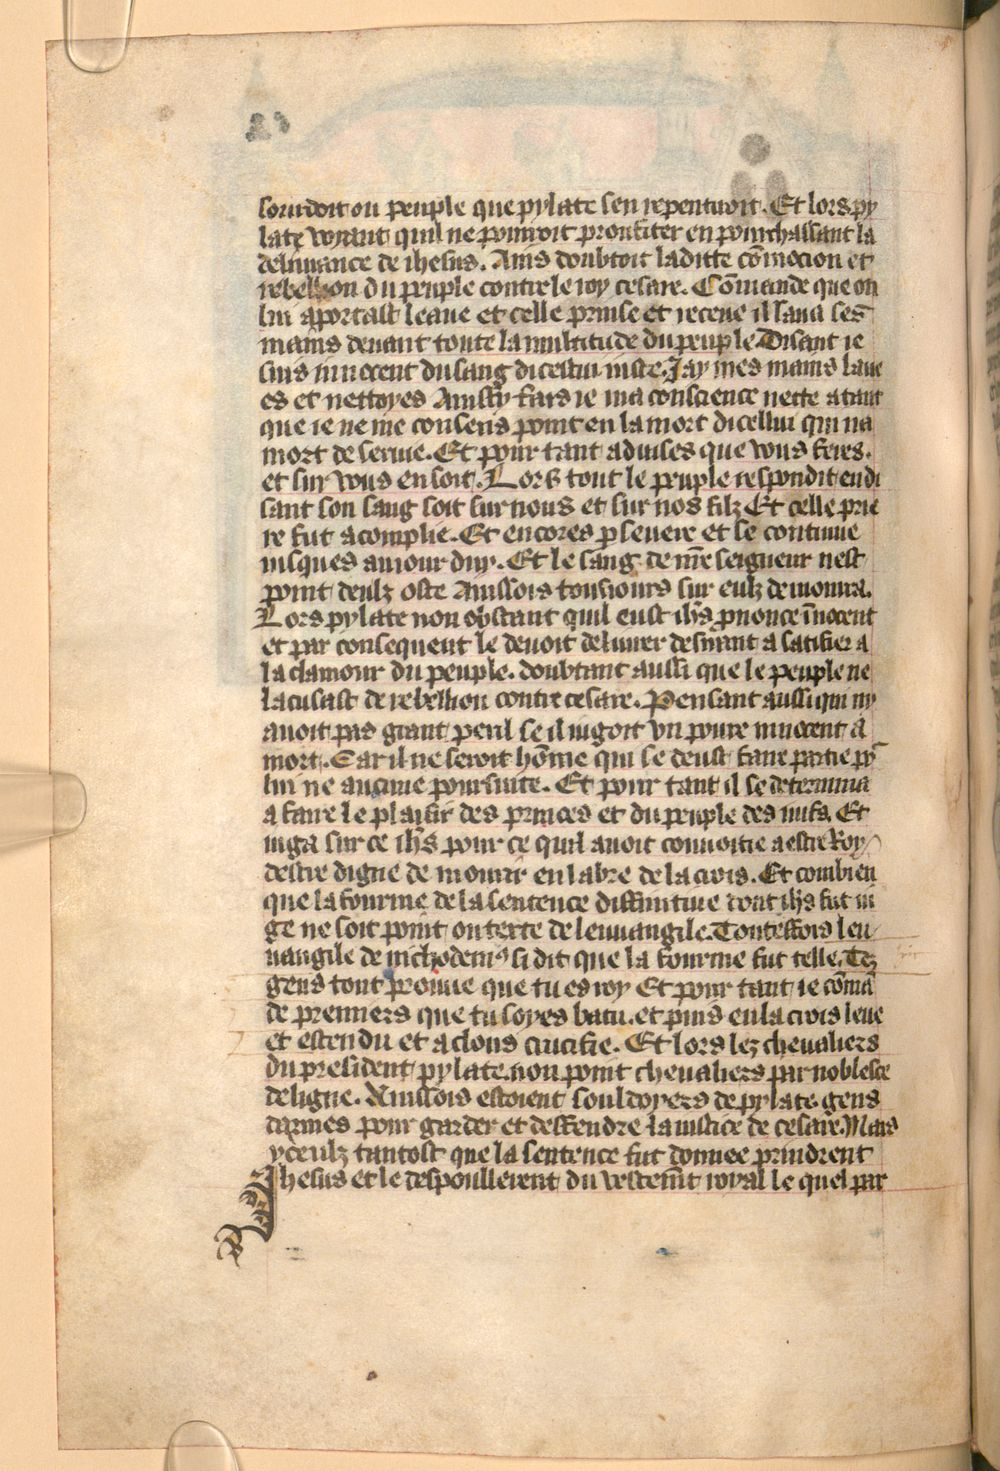 sourdoit ou peuple que pylate sen repentiroit. Et lors py
late voyant quil ne pourroit proufiter en pourchassant la
deliurance de ihesus. Ains doubtoit laditte cõmocion et
rebellion du peuple contre le roy cesare. Cõmande que on
lui aportast leaue et celle prinse et receue il laua ses
mains deuant toute la multitude du peuple. Disant ie
suis innocent du sang dicestui iuste. Jay mes mains laue
es et nettoyes Ainssy fais ie ma conscience nette a tant
que ie ne me consens point en la mort dicellui qui na
mort deseruie. Et pour tant aduises que vous feres.
et sur vous en soit. Lors tout le peuple respondit en di
sant son sang soit sur nous et sur nos filz Et celle prie
re fut acomplie. Et encores pseuere et se continue
iusques au iour duy. Et le sang de nr̃e seigneur nest
point deulz oste Ainssois tousiours sur eulz demourra.
Lors pylate non obstant quil eust ih̃s pnonce ĩnocent
et par consequent le deuoit deliurer desirant a satifier a
la clamour du peuple. doubtant aussi que le peuple ne
lacusast de rebellion contre cesare. Pensant aussi qui ny
auoit pas grant peril se il iugoit vn poure innocent a
mort. Car il ne seroit hõme qui se deust faire partie po͂
lui ne aucune poursuite. Et pour tant il se determina
a faire le plaisir des princes et du peuple des iuifs. Et
iuga sur ce ih̃s pour ce quil auoit conuoitie a estre Roy
destre digne de mourir en labre de la crois. Et combien
que la fourme de la sentence diffinitiue dont ih̃s fut iu
ge ne soit point ou texte de leuuangile. Touteffois leu
uangile de nichodemꝰ si dit que la fourme fut telle. Tez
gens tont prouue que tu es roy Et pour tant ie cõmã
de premiers que tu soyes batu. et puis en la crois leue
et estendu et a clous crucifie. Et lors lez cheualiers
du president pylate. non point cheualiers par noblesce
de ligne. Ainssois estoient souldoyers de pylate. gens
darmes pour garder et deffendre la iustice de cesare. Mais
yceulz tantost que la sentence fut donnee prindrent
Jhesus et le despoullerent du vestem̃t royal le quel par